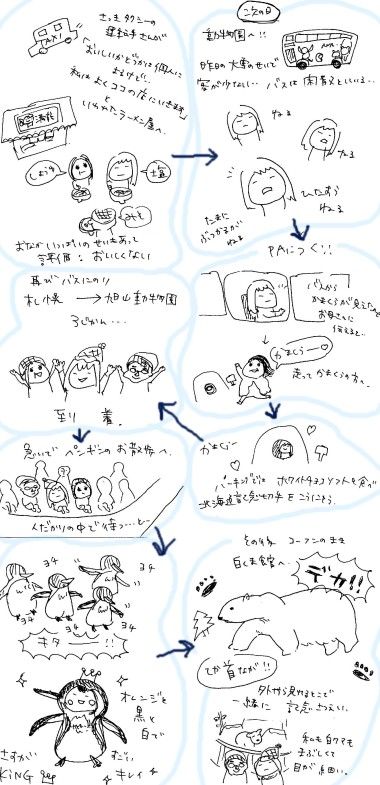 さっき タクシーの
運転手さんが
TAXI
「おいしいかどうかは個人に
よるけど、
私はよくココの店にいきます」
と
いわれたラーメン屋へ。
しょうゆ
塩
みそ
おなかいっぱいのせいもあって
結果:おいしくない
次の日
動物園へ!!
昨日の大雪のせいで
客が少ない… バスは閑散としている…
ねる
ねる
ひたすら
ねる
たまに
ぶつかるが
ねる
PAにつく!!
バスから
かまくらが見えたと
お母さんに
伝えると…
かまくらー♡
走ってかまくらの方へ。
かまくらー
♡
パーキングでは ホワイトチョコソフトを食べ
北海道記念切手をこうにゅう。
再びバスにのり
札幌 → 旭山動物園
3じかん…
到 着。
急いで ペンギンの お散歩へ。
人だかりの中で待つ…と…
ヨチ
ヨチ
ヨチ
ヨチ
ヨチ
キター!!
オレンジと
黒と
白で
さすが
KiNG
すごい
キレイ
その後 コーフンのまま
白くま館へ。
デカ!!
てか首なが!!
外から見れるとこで
一緒に 記念さつえい。
私も白クマも
まぶしくて
目が細い。